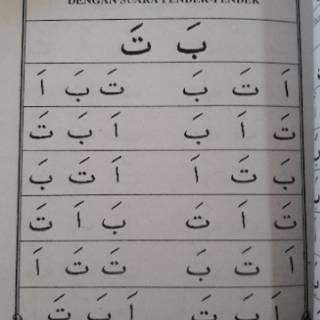 DENGAN SUARA PENDEK-PENDEK
بَ تَ
اَ تَ بَ تَ بَ اَ
تَ اَ بَ اَ بَ تَ
بَ تَ اَ اَ تَ بَ
تَ اَ تَ بَ اَ تَ
اَ تَ بَ تَ تَ اَ
اَ بَ تَ اَ بَ تَ